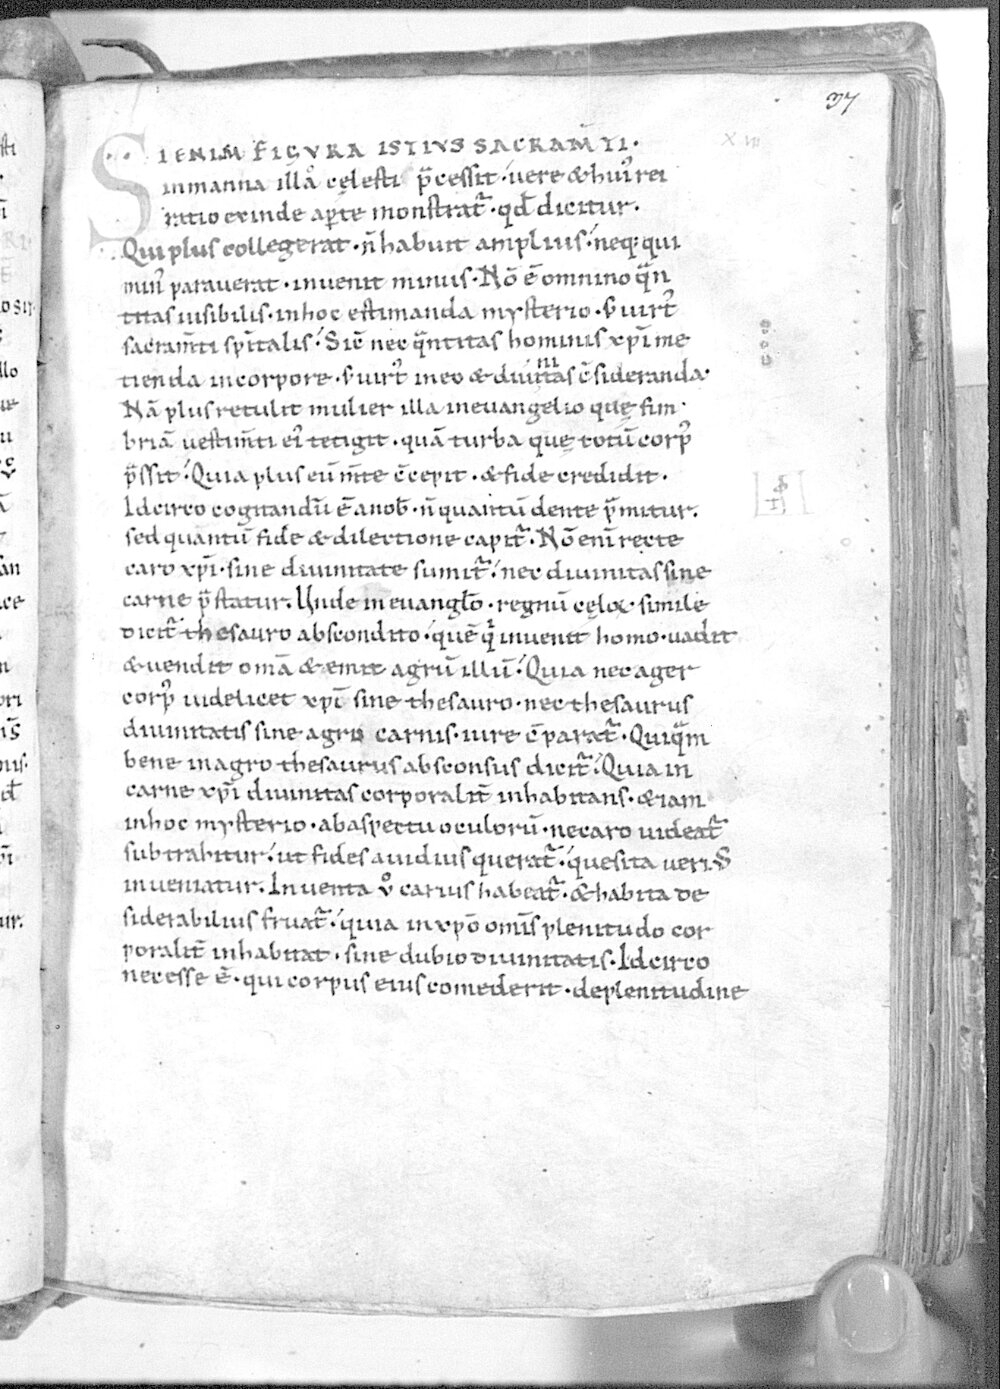 37
SI ENIM FIGURA ISTIUS SACRAM̅TI· XVII
in manna illa cęlesti p̄cessit· uere & hui᾽ rei
ratio exinde ap̲te monstrat᷑· qđ dicitur.
Qui plus collegerat· n̄ habuit amplius· neq; qui
min᾽ parauerat· inuenit minus· Nō ē omnino qͣn
titas uisibilis· in hoc estimanda mysterio· s; uirt᾽
sacram̅ti sp̅italis· Sic̅ nec qͣntitas hominis xp̅i me
tienda in corpore· s; uirt᾽ in eo & diuinitas c̅sideranda·
Nā plus retulit mulier illa in euangelio quę fim
briā uestim̅ti ei᾽ tetigit· quā turba quę totū corp᾽
p̄ssit· Quia plus eū m̅te c̅cepit· & fide credidit·
Idcirco cogitandū ē a nob̅· n̄ quantū dente p̄mitur·
sed quantū fide & dilectione capit᷑· Nō eni̅ recte
caro xp̅i· sine diuinitate sumit᷑· nec diuinitas sine
carne p̄statur. Unde in euangl̅o· regnū cęloꝝ simile
dicit᷑ thesauro abscondito· quē qͥ inuenit homo· uadit
& uendit om̅a & emit agrū illū· Quia nec ager
corp᾽ uidelicet xp̅i sine thesauro· nec thesaurus
diuinitatis sine agro carnis· iure c̅parat᷑· Quiqͣm
bene in agro thesaurus absconsus dicit᷑· Quia in
carne xp̅i diuinitas corporalit̅ inhabitans· & iam
in hoc mysterio· ab aspectu oculorū· ne caro uideat᷑
subtrahitur· ut fides auidius querat᷑· quesita ueri᾽
inueniatur. Inuenta ů carius habeat᷑· & habita de
siderabilius fruat᷑· quia in xp̅o om̅is plenitudo cor
poralit̅ inhabitat· sine dubio diuinitatis· Idcirco
necesse ē· qui corpus eius comederit· de plenitudine